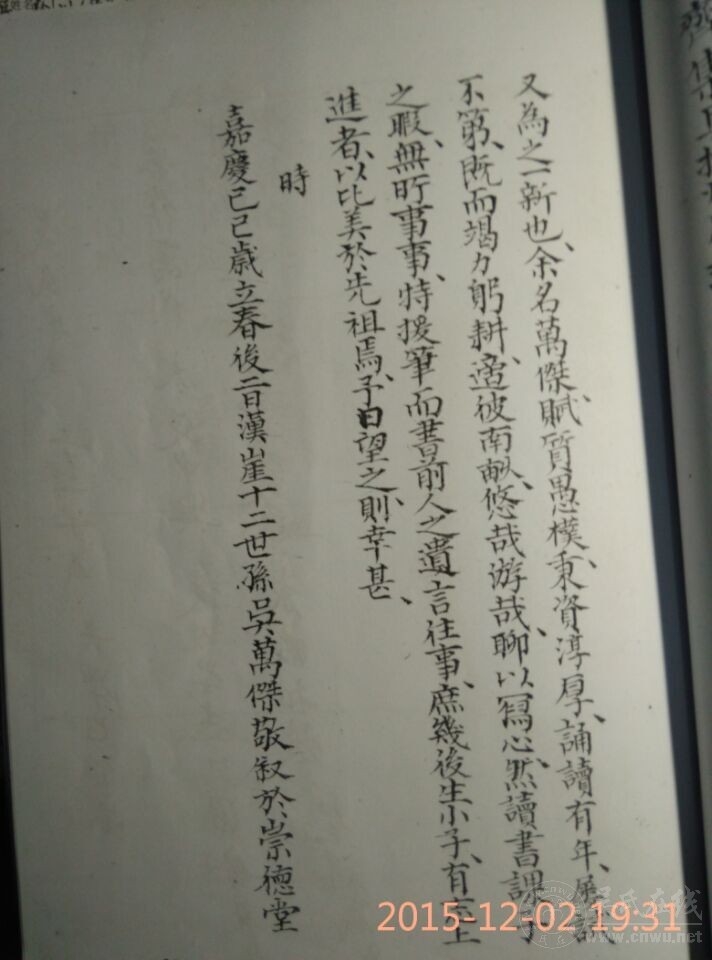 又為之一新也、余名萬傑、賦質愚樸、秉資淳厚、誦讀有年、屢試
不第、既而竭力躬耕、適彼南畝、悠哉游哉、聊以寫心、然讀書課子
之暇、無所事事、特援筆而書前人之遺言往事、庶幾後生小子、有志上
進者、以比美於先祖焉、予日望之、則幸甚、
時
嘉慶己巳歲立春後二日漢崖十二世孫吳萬傑敬叙於崇德堂
2015-12-02 19:31
吴氏在线
www.cnwu.net